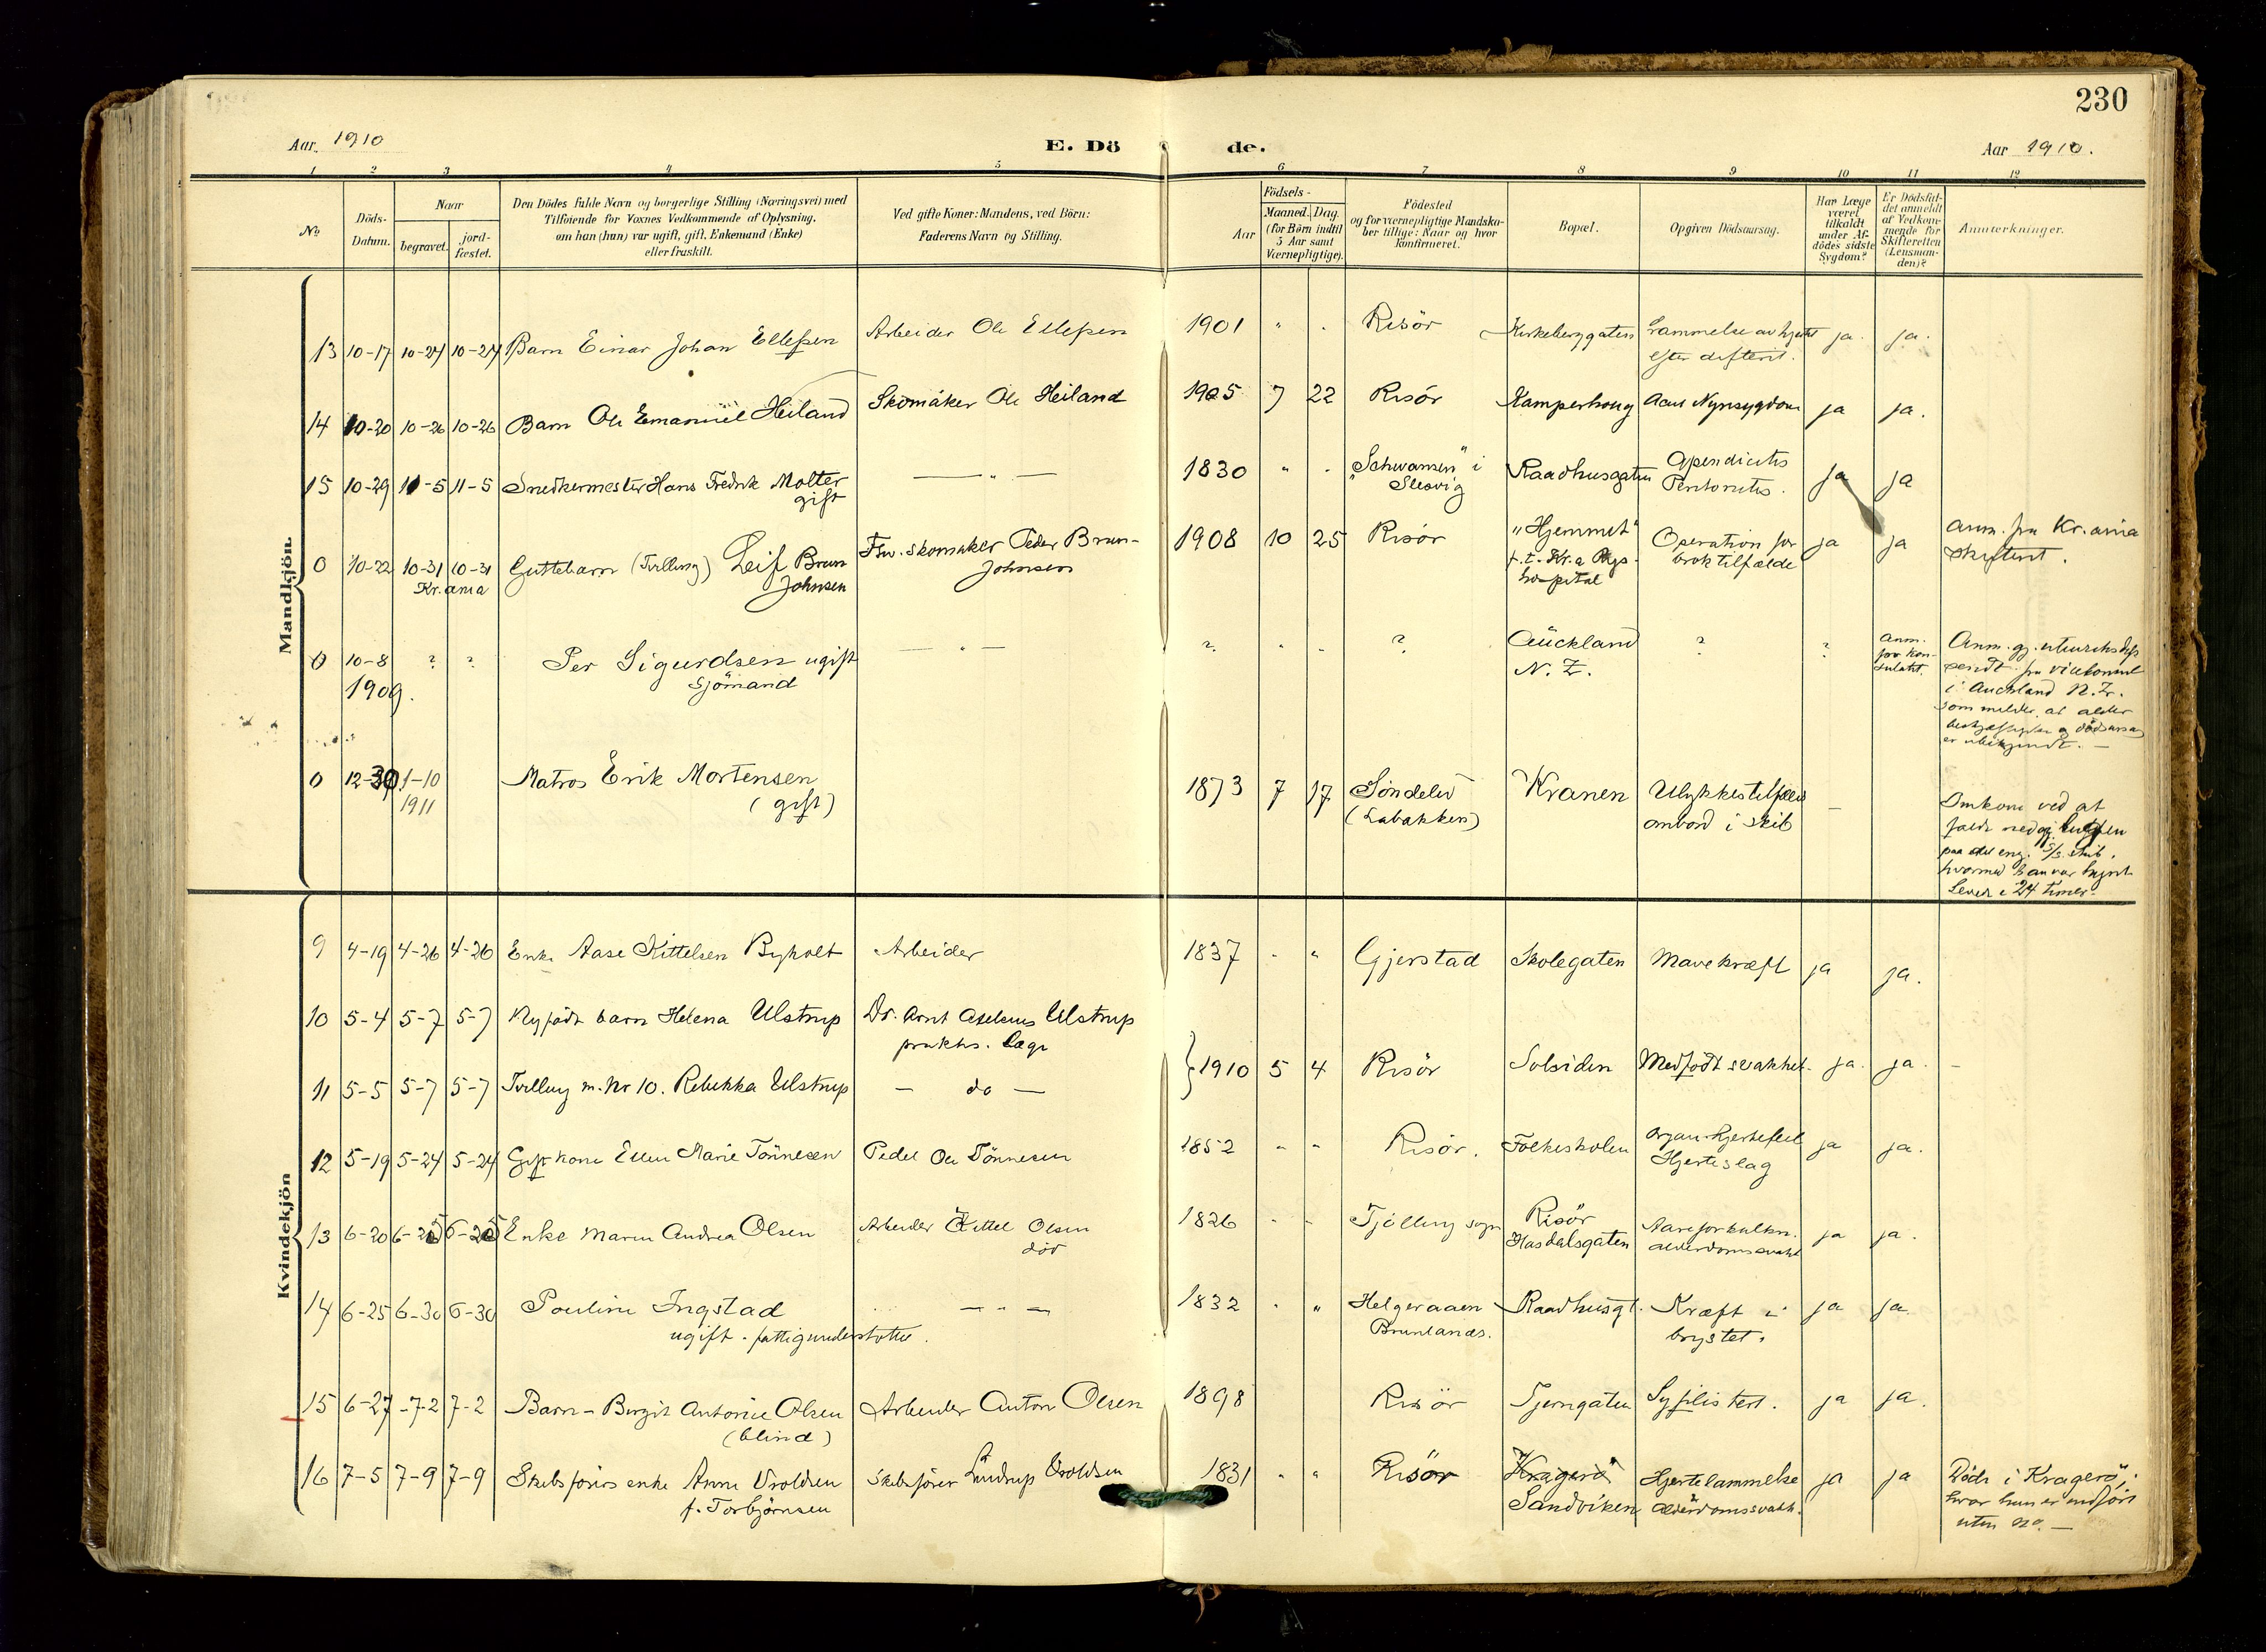 230
Aar. 1910
E. Dö
de.
Aar 1910.
1 2 3 4 5 6 7 8 9 10 11 12
No
Döds-
Datum.
Naar
begravet.
jord-
fæstet.
Den Dödes fulde Navn og borgerlige Stilling (Næringsvei) med
Tilföiende for Voxnes Vedkommende af Oplysning,
om han (hun) var ugift, gift, Enkemand (Enke)
eller fraskilt.
Ved gifte Koner: Mandens, ved Börn:
Faderens Navn og Stilling.
Födsels-
Aar
Maaned. Dag.
(for Börn indtil
5 Aar samt
Værnepligtige).
Födested
og for værnepligtige Mandska-
ber tillige: Naar og hvor
konfirmeret.
Bopæl.
Opgiven Dödsaarsag.
Har Læge
været
tilkaldt
under Af-
dödes sidste
Sygdom?
Er Dödsfal-
det anmeldt
af Vedkom-
mende for
Skifteretten
(Lensman-
den)?
Anmærkninger.
Mandkjön.
13 10-17 10-24 10-24 Barn Einar Johan Ellefsen Arbeider Ole Ellefsen 1901 " . Risör Kirkeberggaten Lammelse av hjertet ja. ja.
efter difterit.
14 10-20 10-26 10-26 Barn Ole Emanuel Heiland Skomåker Ole Heiland 1905 7 22 Risör Kamperhaug Acut Nyrsygdom ja ja.
15 10-29 11-5 11-5 Snedkermester Hans Fredrik Molter — " — 1830 " . "Schwansen" i Raadhusgaten Apendicitis ja ja
gift Slesvig Peritonitis.
0 10-22 10-31 10-31 Guttebarn (Tvilling) Leif Brun Fhv. skomaker Peder Brun- 1908 10 25 Risör "Hjemmet" Operation for ja ja anm. fra Kr.ania
Kr.ania Johnsen Johnsen p.t. Kr.a Rigs- broktilfælde skifteret.
hospital
0 10-8 ? ? Per Sigurdsen ugift — " — ? " . ? Auckland ? ? anm.
1909. Sjömand N. Z. for kon-
sulatet.
Anm. gj.
sendt fra visekonsul
i Auckland N. Z.
som melder, at alder
er ubekjendt. —
0 12-30 1-10 Matros Erik Mortensen 1873 7 17 Söndeled Kranen Ulykkestilfælde —
1911 (gift) (Labakken) ombord i skib
Omkom ved at
falde ned gj. lugen
paa det eng. S/S. skib,
hvormed han var hyret
Levede i 24 timer.
Kvindekjön
9 4-19 4-26 4-26 Enke Aase Kittelsen Byholt Arbeider 1837 " " Gjerstad Skolegaten Mavekræft ja ja.
10 5-4 5-7 5-7 Nyfödt barn Helena Ulstrup Dr. Arnt Ulstrup
praktis. læge
} 1910 5 4 Risör Solsiden Medfödt svakhet ja. ja.
11 5-5 5-7 5-7 Tvilling m. Nr 10. Rebekka Ulstrup — do —
12 5-19 5-24 5-24 Gift kone Ellen Marie Tönnesen Pedel Ole Tönnesen 1852 " " Risör. Folkeskolen Organ. hjertefeil ja ja.
Hjerteslag
13 6-20 6-25 6-25 Enke Maren Andrea Olsen Arbeider Kittel Olsen 1826 " " Tjölling sogn Risör Aareforkalkn. ja ja.
död Hasdalsgaten alderdomssvakh
14 6-25 6-30 6-30 Pouline Ingstad — " — 1832 " " Helgeraaen Raadhusgt. Kræft i ja ja.
ugift. fattigunderstöttet. Brunlanæs. brystet.
15 6-27 -7-2 7-2 Barn - Borgit Antonie Olsen Arbeider Anton Olsen 1898 Risör Tjerngaten Syfilis tert. ja ja.
(blind)
16 7-5 7-9 7-9 Skibsförers enke Anne Vroldsen Skibsförer Lindrup Vroldsen 1831 " " Risör Kragerö Hjertelammelse ja ja Döde i Kragerö,
f. Torbjörnsen Sandviken Alderdomssvakh. hvor hun er indfört
uten no. —